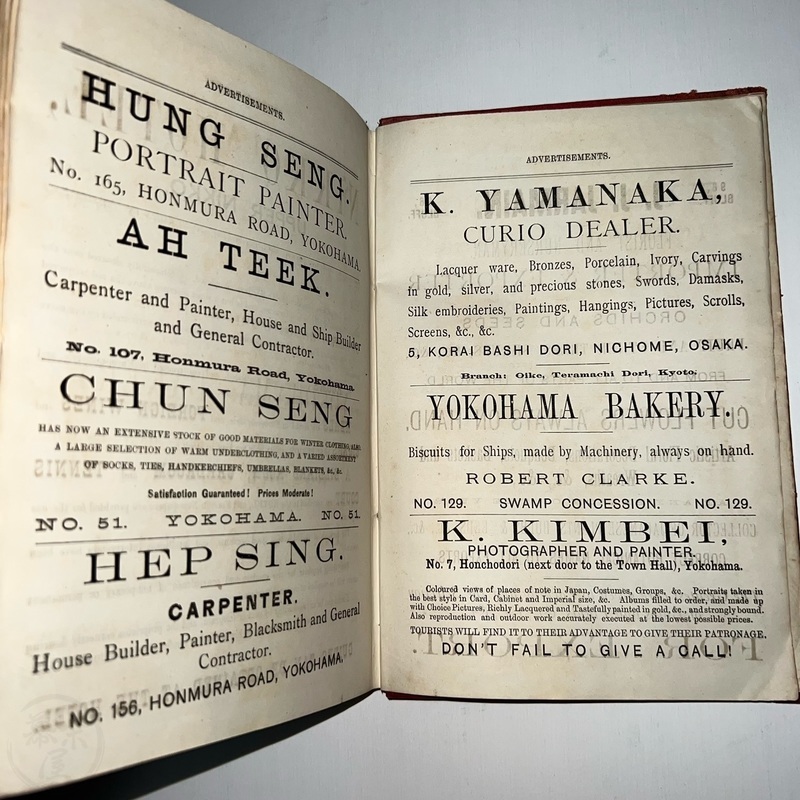 ADVERTISEMENTS.
HUNG SENG.
PORTRAIT PAINTER.
No. 165, HONMURA ROAD, YOKOHAMA.
AH TEEK.
Carpenter and Painter, House and Ship Builder
and General Contractor.
No. 107, Honmura Road, Yokohama
CHUN SENG
HAS NOW AN EXTENSIVE STOCK OF GOOD MATERIALS FOR WINTER CLOTHING, ALSO:
A LARGE SELECTION OF WARM UNDERCLOTHING, AND A VARIED ASSORTMENT
OF SOCKS, TIES, HANDKERCHIEFS, UMBRELLAS, BLANKETS, &c., &c.
Satisfaction Guaranteed! Prices Moderate!
NO. 51. YOKOHAMA. NO. 51.
HEP SING.
CARPENTER.
House Builder, Painter, Blacksmith and General
Contractor.
NO. 156, HONMURA ROAD, YOKOHAMA.
ADVERTISEMENTS.
K. YAMANAKA,
CURIO DEALER.
Lacquer ware, Bronzes, Porcelain, Ivory, Carvings
in gold, silver, and precious stones, Swords, Damasks,
Silk embroideries, Paintings, Hangings, Pictures, Scrolls,
Screens, &c., &c.
5, KORAI BASHI DORI, NICHOME, OSAKA.
Branch: Oike, Teramachi Dori, Kyoto.
YOKOHAMA BAKERY.
Biscuits for Ships, made by Machinery, always on hand.
ROBERT CLARKE.
NO. 129. SWAMP CONCESSION. NO. 129.
K. KIMBEI,
PHOTOGRAPHER AND PAINTER.
No. 7, Honchodori (next door to the Town Hall), Yokohama.
Coloured views of places of note in Japan, Costumes, Groups, &c. Portraits taken in
the best style in Card, Cabinet and Imperial size, &c. Albums filled to order, and made up
with Choice Pictures, Richly Lacquered and Tastefully painted in gold, &c., and strongly bound.
Also reproduction and outdoor work accurately executed at the lowest possible prices.
TOURISTS WILL FIND IT TO THEIR ADVANTAGE TO GIVE THEIR PATRONAGE.
DON'T FAIL TO GIVE A CALL!